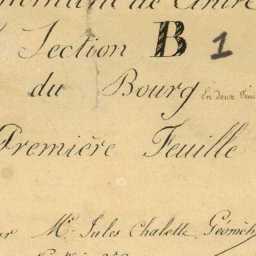 Section B 1
du Bourg En deux
Première Feuille
Mr. Jules Chalette Géomèt